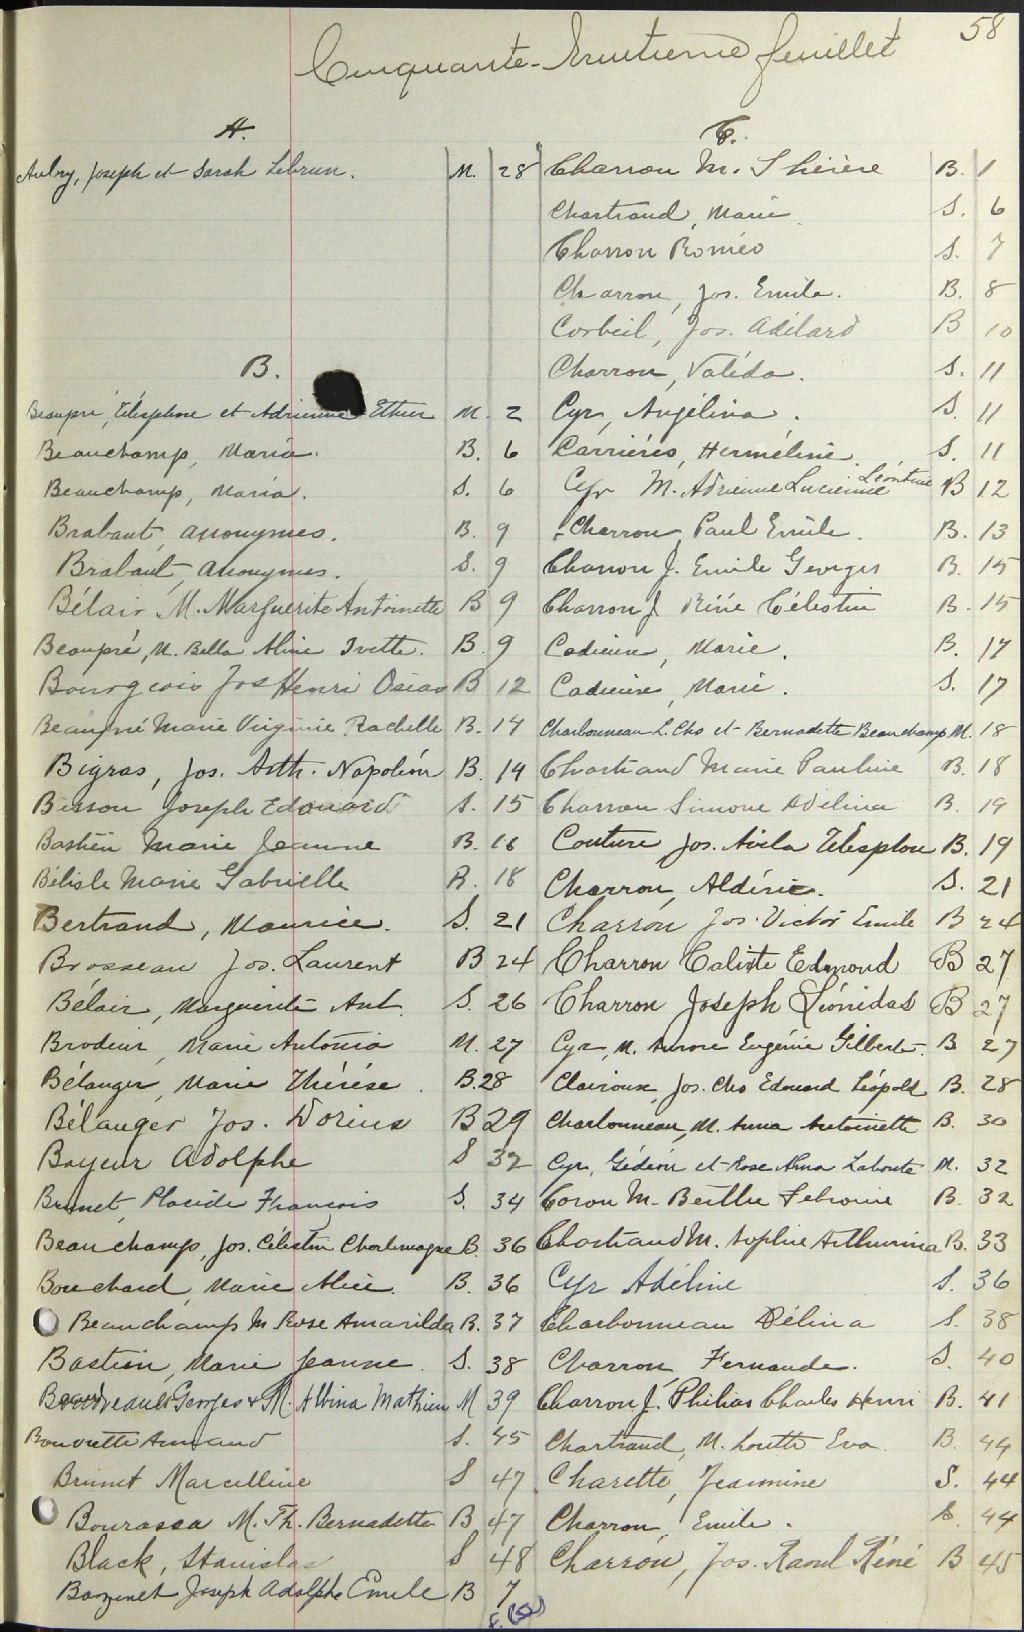 58
Cinquante-huitième feuillet
A.
Aubry, Joseph et Sarah Lebrun. M. 28
B.
Beaupré, Télesphore et Adrienne Ethier M. 2
Beauchamp, Maria. B. 6
Beauchamp, Maria. S. 6
Brabant, anonymes. B. 9
Brabant, anonymes. S. 9
Bélair M. Marguerite Antoinette B 9
Beaupré, M. Bella Aline Ivette. B. 9
Bourgeois Jos Henri Osias B 12
Beaupré Marie Virginie Rachelle B. 14
Bigras, Jos. Arth. Napoléon B. 14
Bisson Joseph Edouard S. 15
Bastien Marie Jeanne B. 16
Bélisle Marie Gabrielle B. 18
Bertrand, Maurice. S. 21
Brosseau Jos. Laurent B 24
Bélair, Marguerite Ant. S. 26
Brodeur, Marie Antonia M. 27
Bélanger, Marie Thérèse. B. 28
Bélanger Jos. Dorius B 29
Boyeur Adolphe S 32
Brunet, Placide François S. 34
Beauchamp, Jos. Célestin Charlemagne B. 36
Bouchard, Marie Alice. B. 36
Beauchamp M. Rose Amarilda B. 37
Bastien, Marie Jeanne. S. 38
Georges & M. Albina Mathieu M 39
Armand S. 45
Brunet Marcelline S 47
Bourassa M. Th. Bernadette B 47
Black, Stanislas S 48
Joseph Adolphe Emile B 7
C.
Charron M. Thérèse B. 1
Chartrand, Marie. S. 6
Charron Roméo S. 7
Charron, Jos. Emile. B. 8
Corbeil, Jos. Adélard B 10
Charron, Valéda. S. 11
Cyr, Angélina. S. 11
Carrières, Herméline. S. 11
Cyr M. Adrienne Lucienne Léontine B 12
Charron, Paul Emile. B. 13
Charron J. Emile Georges B. 15
Charron J. Réné Célestin B. 15
Cadieux, Marie. B. 17
Cadieux, Marie. S. 17
Charbonneau L. Chs et Bernadette Beauchamp M. 18
Chartrand Marie Pauline B. 18
Charron Simone Adélina B. 19
Couture Jos. Avila Télesphore B. 19
Charron, Aldéric. S. 21
Charron Jos. Victor Emile B 24
Charron Calixte Edmond B 27
Charron Joseph Léonidas B 27
Cyr, M. Aurore Eugénie Gilberte. B 27
Clairoux, Jos. Chs Edouard Léopold B. 28
Charbonneau, M. Anna Antoinette B. 30
Cyr, Gédéon et Rose Alma Labonté M. 32
Coron M. Berthe Fébronie B. 32
Chartrand M. Sophie Arthurina B. 33
Cyr Adéline S. 36
Charbonneau Délina S. 38
Charron, Fernande. S. 40
Charron J. Philias Charles Henri B. 41
Chartrand, M. Eva B. 44
Charette, Jeannine S. 44
Charron, Emile. S. 44
Charron, Jos. Raoul Réné B 45